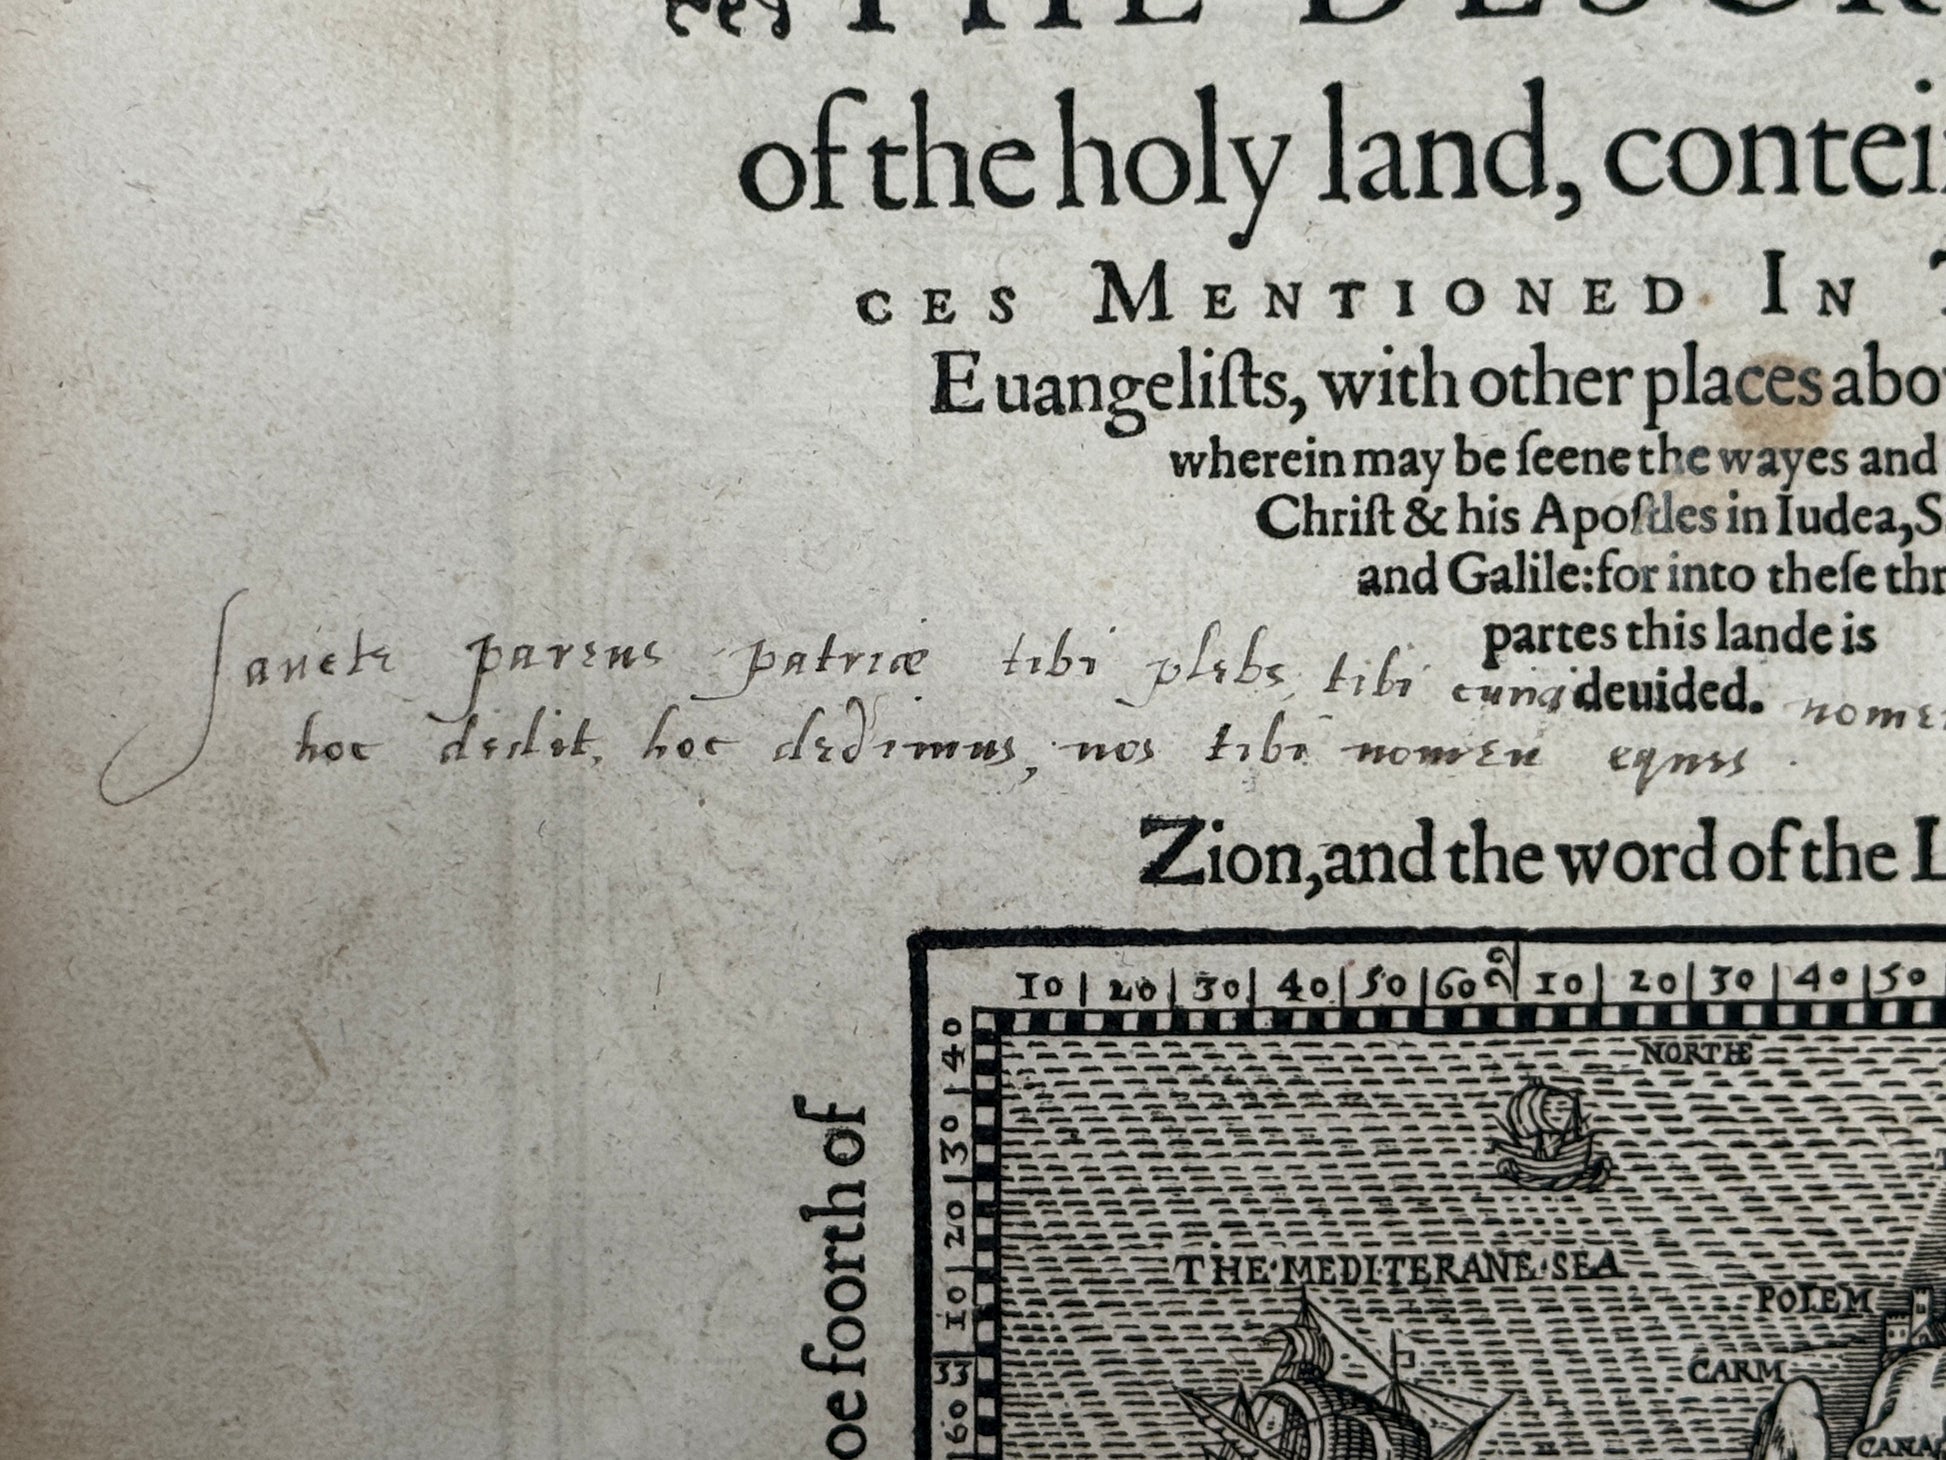 THE DESCR
of the holy land, contei
CES MENTIONED IN
Euangeliſts, with other places abo
wherein may be ſeene the wayes and
Chriſt & his Apoſtles in Iudea, S
and Galile: for into theſe thr
partes this lande is
deuided.
Sancte parens patriæ tibi plebs, tibi curia nomen
hoc dedit, hoc dedimus, nos tibi nomen eques.
Zion, and the word of the L
10 20 30 40 50 60 10 20 30 40 50
40 30 20 10 33 60
NORTH
THE·MEDITERANE·SEA
POLEM
CARM
CANA
oe foorth of